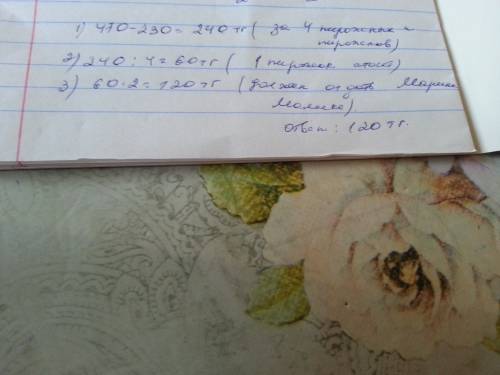 1) 470-230= 240 тг ( за 4 пирожных и
пирожков)
2) 240 : 4 = 60 тг ( 1 пирожок стоит)
3) 60·2=120 тг ( должен отдать Марат
Малике)
Ответ: 120 тг.